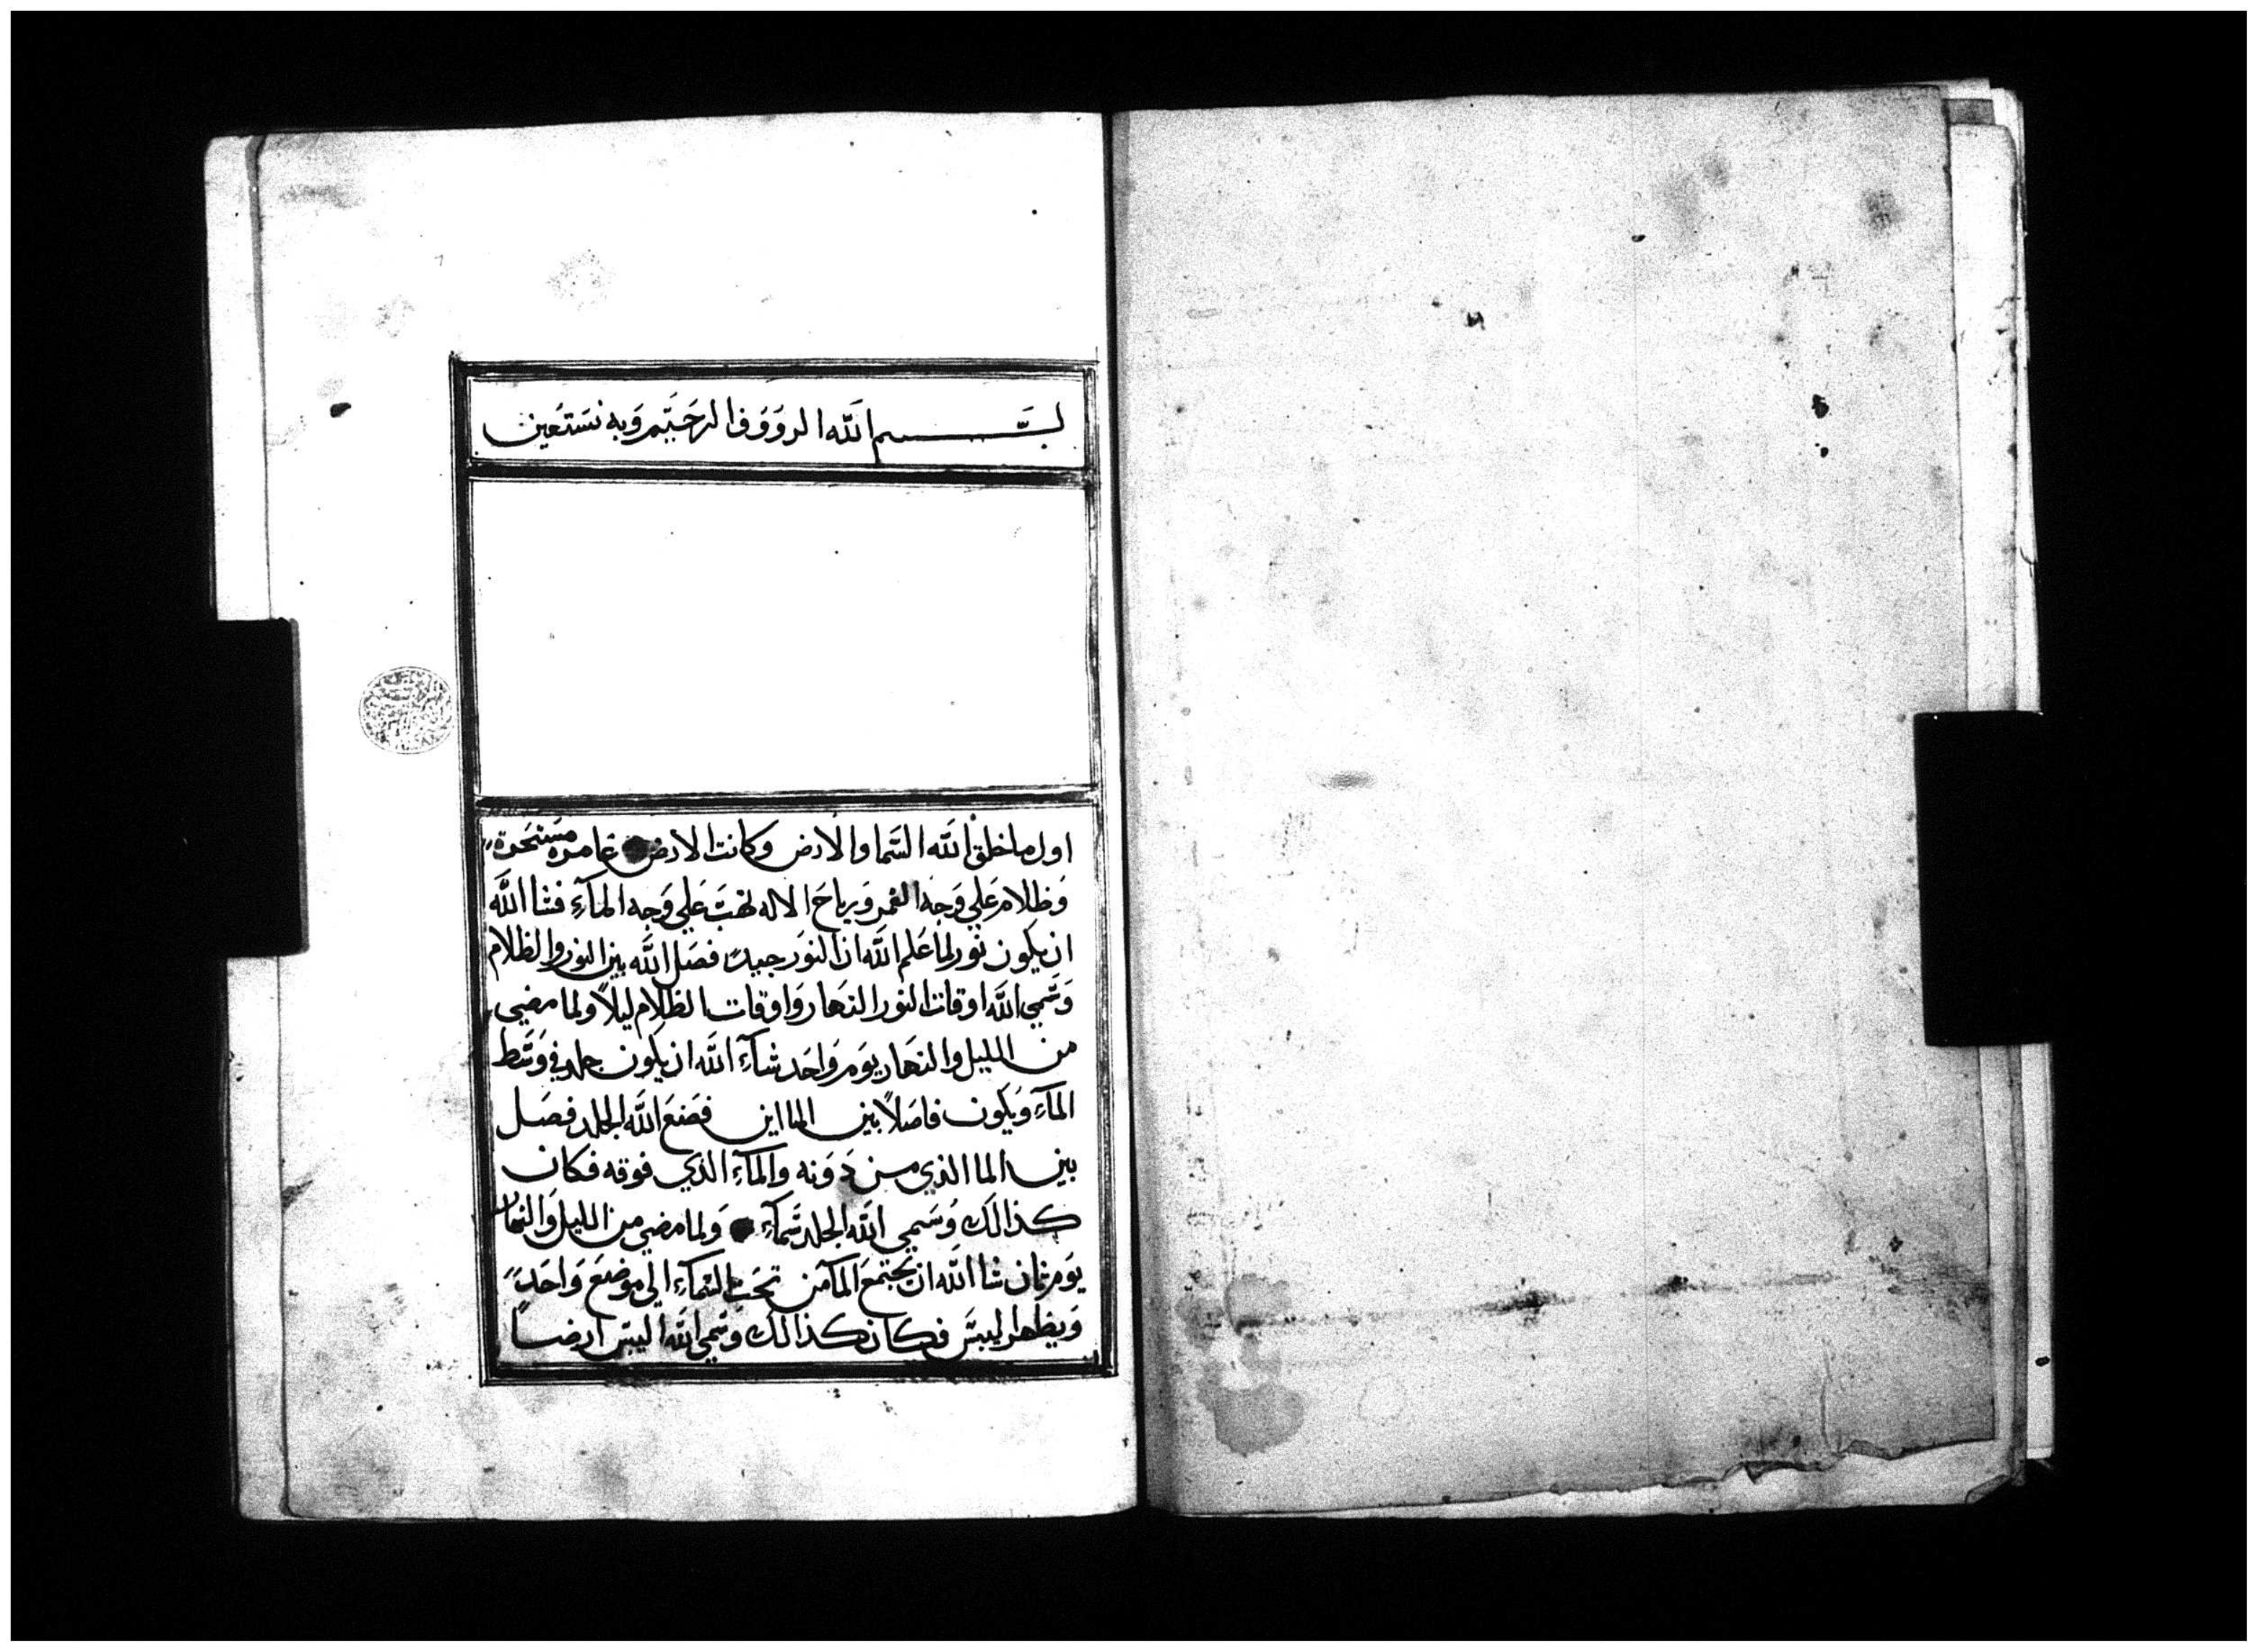 بسم الله الرووف الرحيم وبه نستعين
اول ما خلق الله السما والارض وكانت الارض غامره مستبحرة
وظلام علي وجه الغمر ورياح الاله تهب علي وجه المآء فشا الله
ان يكون نور لما علم الله ان النور جيد فصل الله بين النور والظلام
وسمي الله اوقات النور النهار واوقات الظلام ليلاً ولما مضي
من الليل والنهار يوم واحد شآء الله ان يكون جلد في وسط
المآء ويكون فاصلاً بين الماين فصنع الله الجلد فصل
بين الما الذي من دونه والمآء الذي فوقه فكان
كذالك وسمي الله الجلد سمآء ولما مضي من الليل والنهار
يوم ثان شا الله ان يجتمع المآ من تحت السمآء الي موضع واحد
ويظهر اليبس فكان كذالك وسمي الله اليبس ارضا